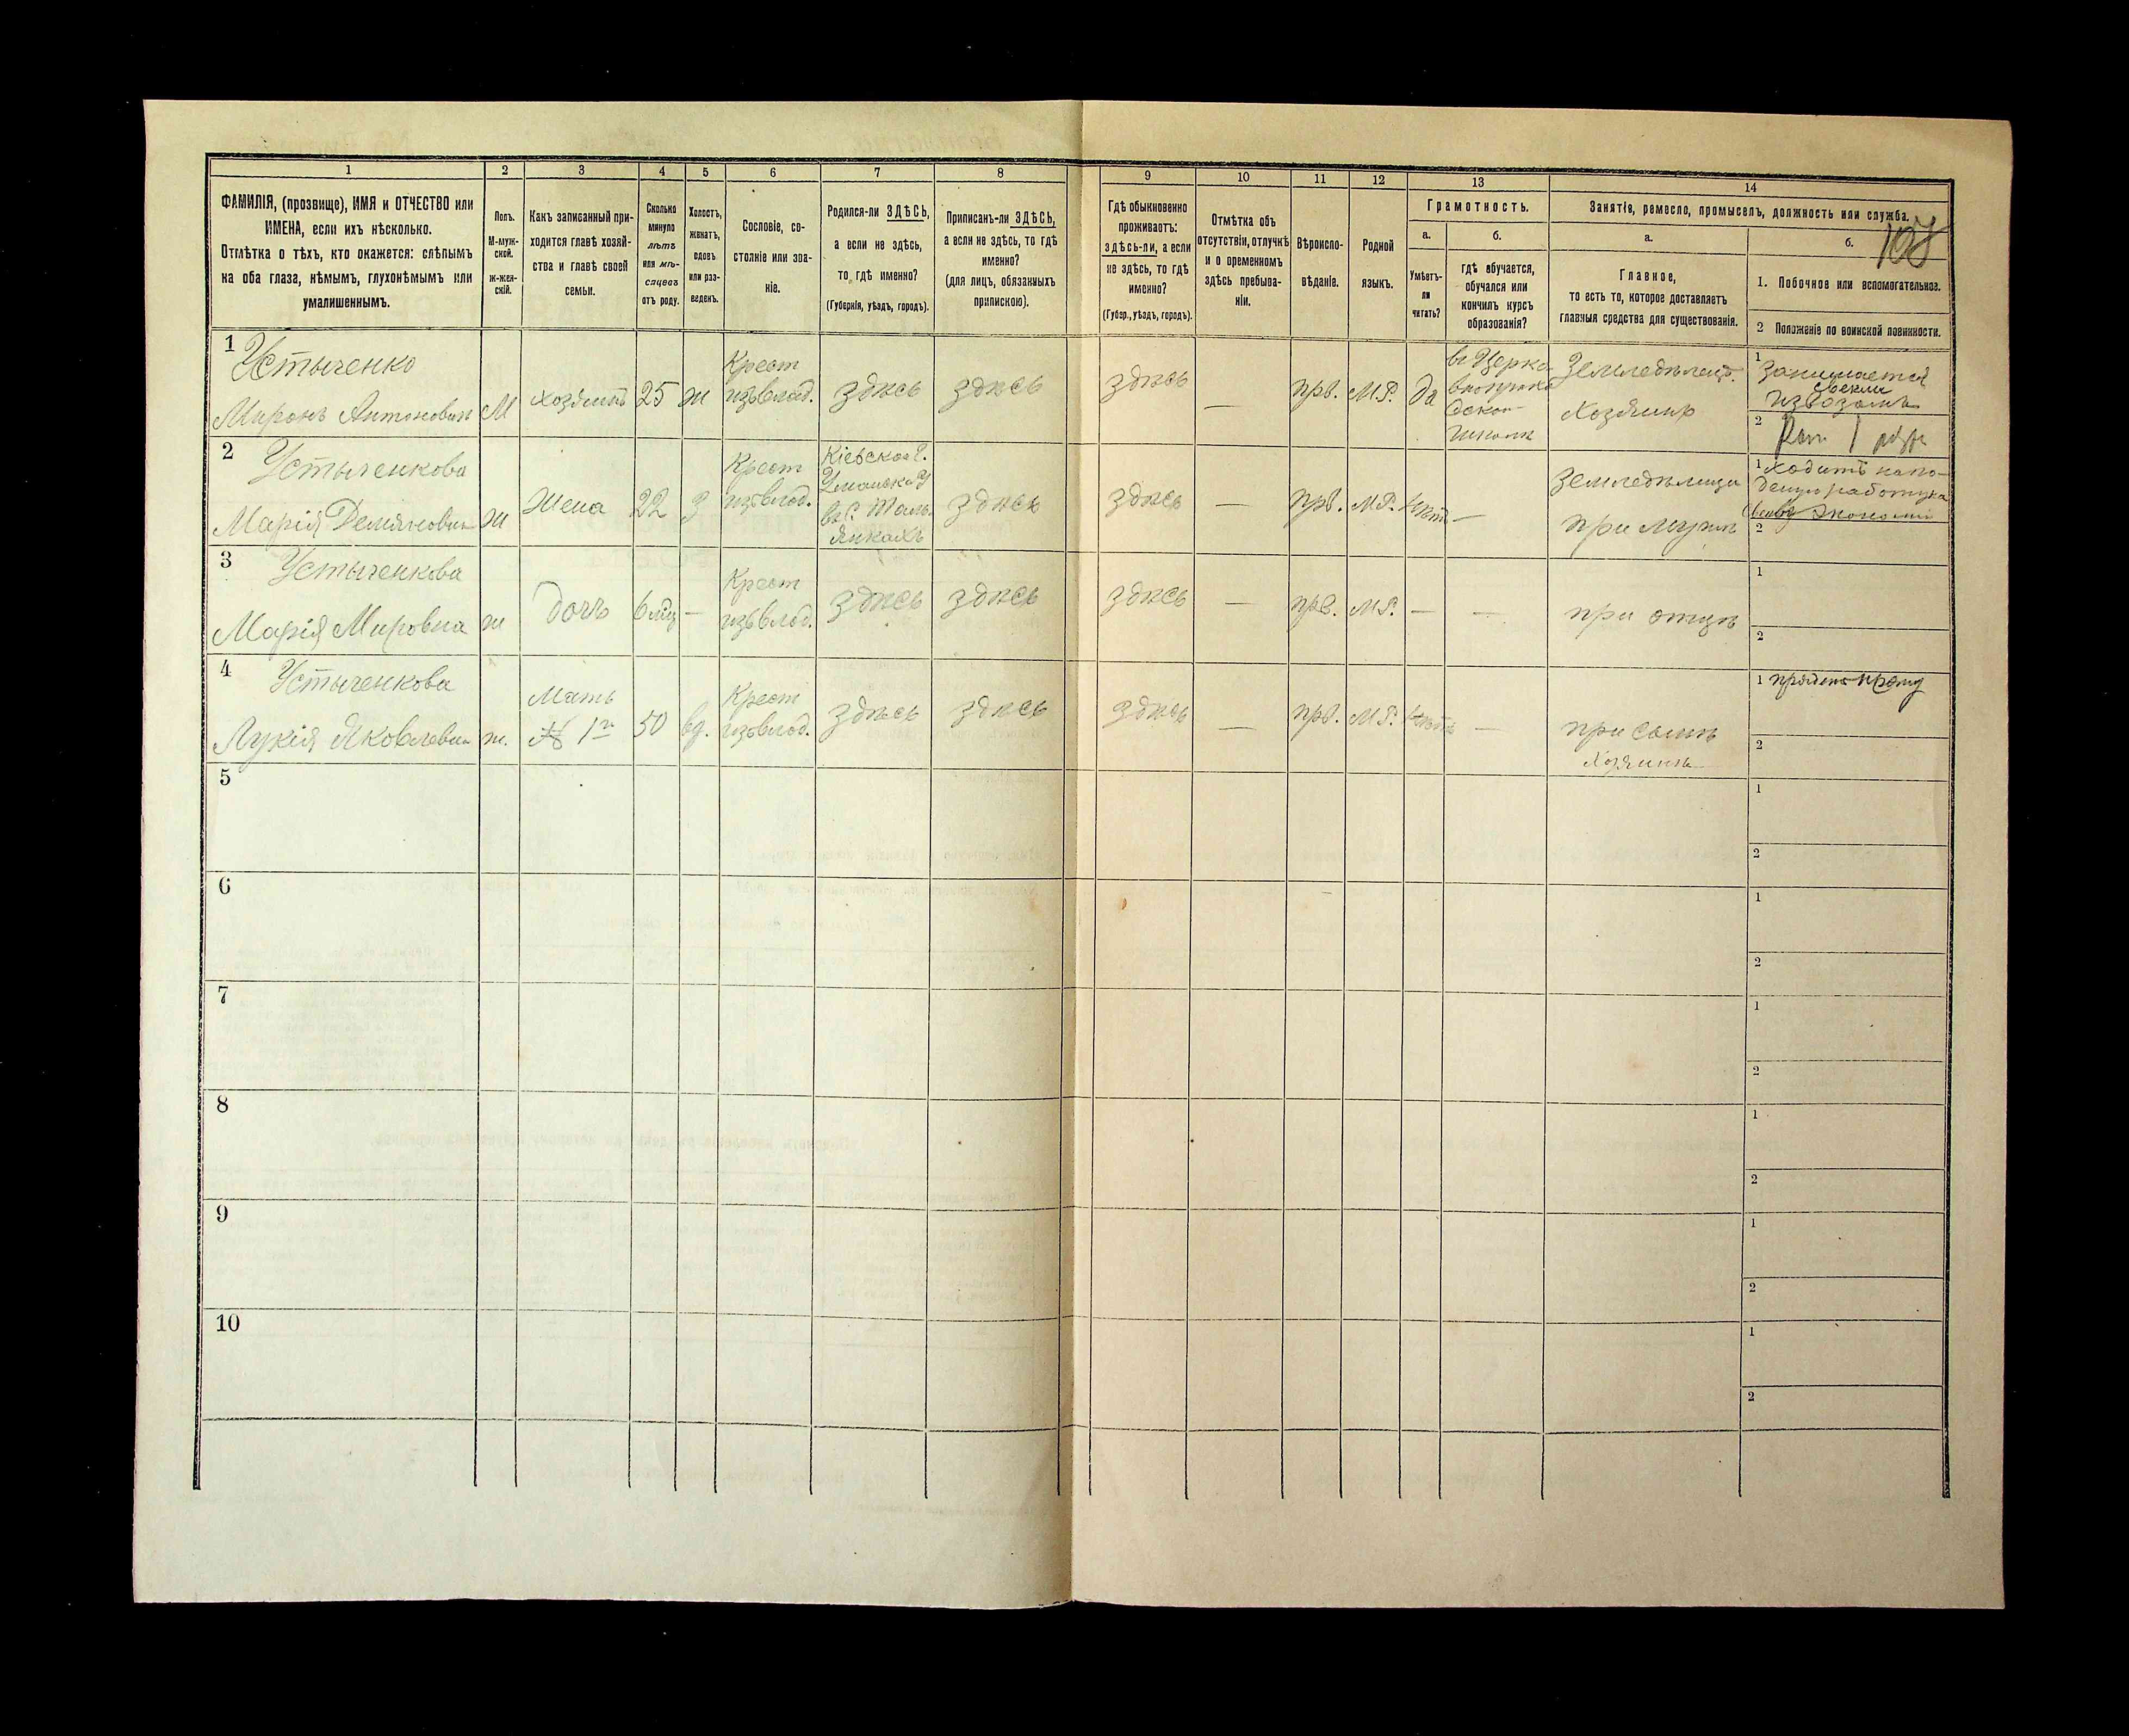 1 2 3 4 5 6 7 8 9 10 11 12 13 14
ФАМИЛІЯ, (прозвище), ИМЯ и ОТЧЕСТВО или
ИМЕНА, если ихъ нѣсколько.
Отмѣтка о тѣхъ, кто окажется: слѣпымъ
на оба глаза, нѣмымъ, глухонѣмымъ или
умалишеннымъ.
Полъ.
М-муж-
ской.
ж-жен-
скій.
Какъ записанный при-
ходится главѣ хозяй-
ства и главѣ своей
семьи.
Сколько
минуло
лѣтъ
или мѣ-
сяцевъ
отъ роду.
Холостъ,
женатъ,
вдовъ
или раз-
веденъ.
Сословіе, со-
стояніе или зва-
ніе.
Родился-ли ЗДѢСЬ,
а если не здѣсь,
то, гдѣ именно?
(Губернія, уѣздъ, городъ).
Приписанъ-ли ЗДѢСЬ,
а если не здѣсь, то гдѣ
именно?
(для лицъ, обязанныхъ
припискою).
Гдѣ обыкновенно
проживаетъ:
здѣсь-ли, а если
не здѣсь, то гдѣ
именно?
(Губер., уѣздъ, городъ).
Отмѣтка объ
отсутствіи, отлучкѣ
и о временномъ
здѣсь пребыва-
ніи.
Вѣроиспо-
вѣданіе.
Родной
языкъ.
Грамотность.
а.
Умѣетъ-
ли
читать?
б.
гдѣ обучается,
обучался или
кончилъ курсъ
образованія?
Занятіе, ремесло, промыселъ, должность или служба.
а.
Главное,
то есть то, которое доставляетъ
главныя средства для существованія.
б.
108
1. Побочное или вспомогательное.
2 Положеніе по воинской повинности.
1
Устыченко
Миронъ Антоновичъ
М
хозяинъ
25
ж
Крест
изъ влад.
здѣсь
здѣсь
здѣсь
—
прв.
М.Р.
да
школѣ
Земледѣлецъ.
Хозяинъ
1 Занимается
извозомъ
2
2
Устыченкова
Марія Демяновна
ж
Жена
22
З
Крест
изъ влад.
Кіевской Г.
Уманск. У
въ с. Таль-
янкахъ
здѣсь
здѣсь
—
прв.
М.Р.
нѣтъ
—
земледѣлица
при мужѣ
1 ходитъ на по-
экономіи
2
3
Устыченкова
Марія Мировна
ж
дочь
6 мѣц
—
Крест
изъ влад.
здѣсь
здѣсь
здѣсь
—
прв.
М.Р.
—
—
при отцѣ
1
2
4
Устыченкова
Лукія Яковлевна
ж.
Мать
№ 1го
50
вд.
Крест
изъ влад.
здѣсь
здѣсь
здѣсь
—
прв.
М.Р.
нѣтъ
—
при сынѣ
Хозяинѣ
1
2
5
1
2
6
1
2
7
1
2
8
1
2
9
1
2
10
1
2